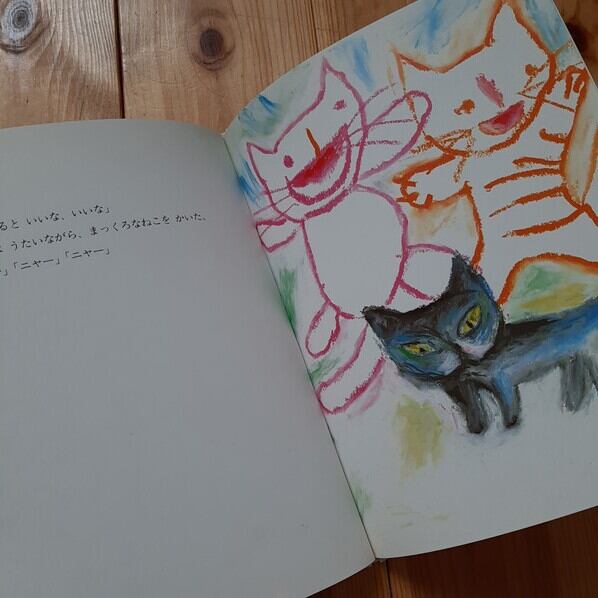 ると いいな、いいな」
うたいながら、まっくろなねこを かいた。
」「ニャー」「ニャー」